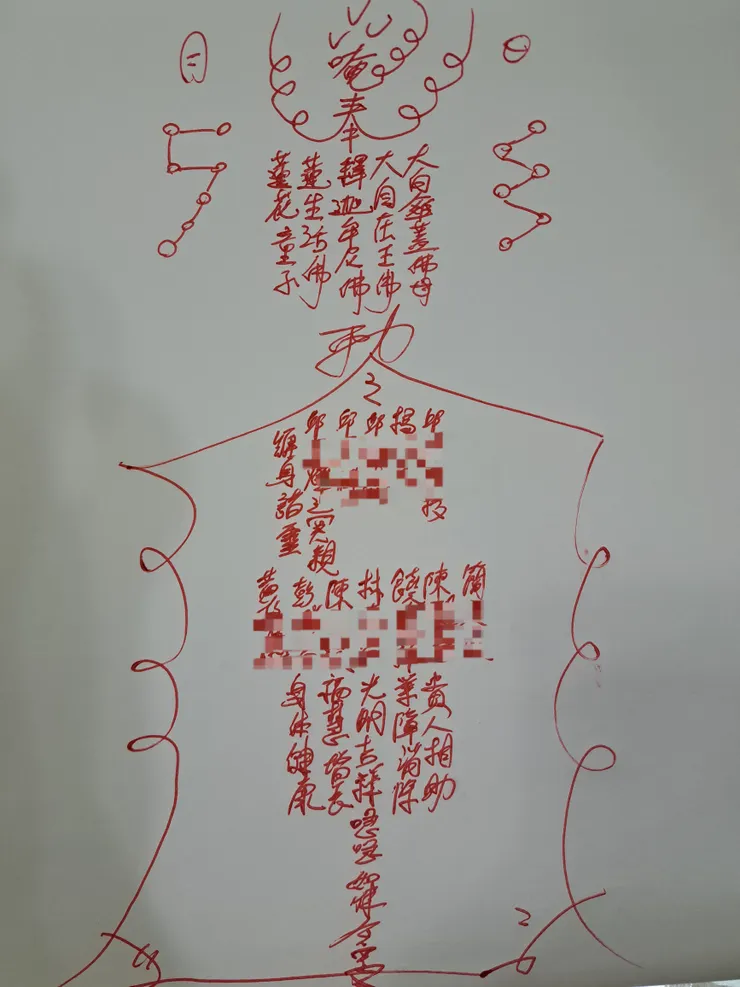 唵
奉
大白傘蓋佛母
大自在王佛
釋迦牟尼佛
蓮生活佛
蓮花童子
之
邱
楊
邱
邱
邱
之冥親
纏身諸靈
簡
陳
饒
林
陳
彭
黃
貴人相助
業障消除
光明吉祥
福慧增長
身体健康
如律令